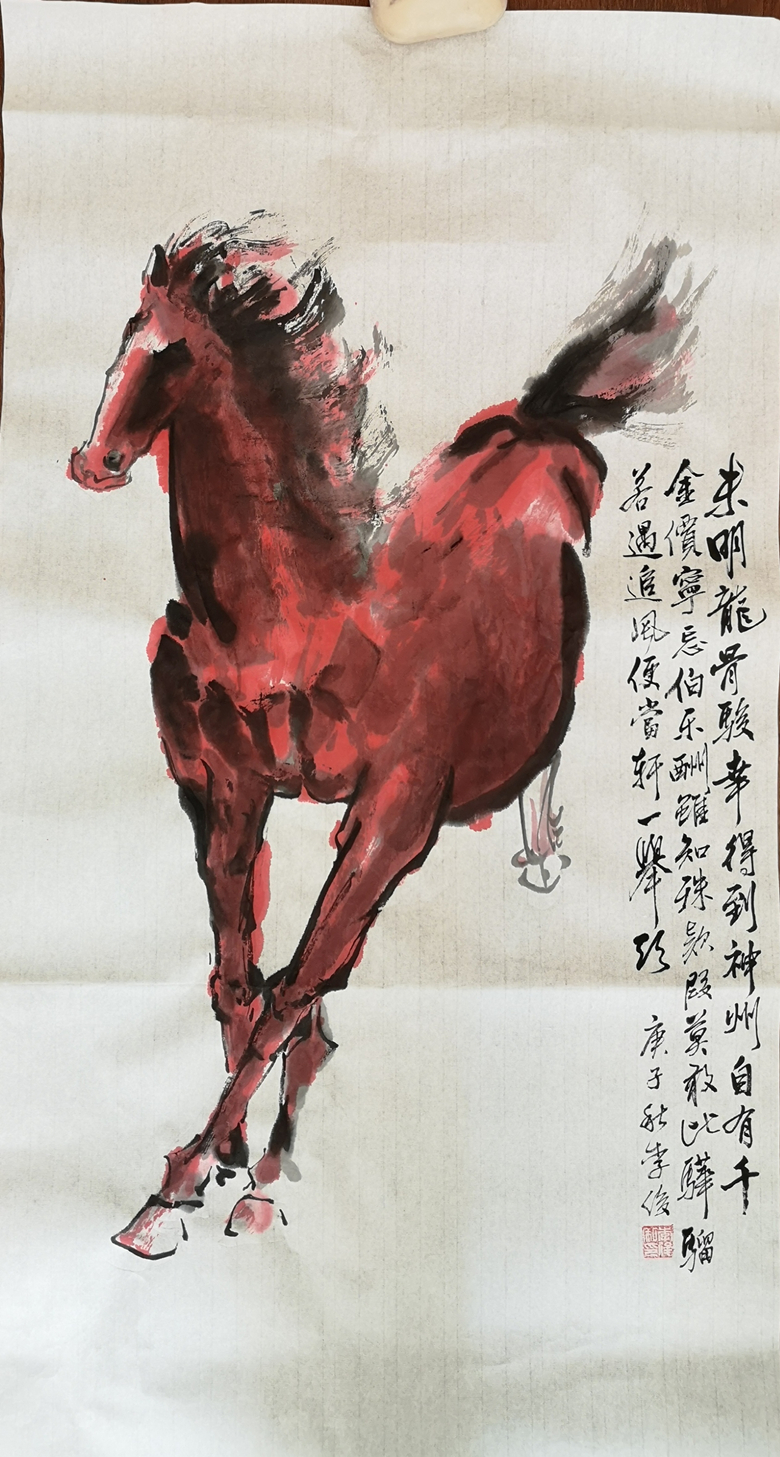 未明龍骨駿幸得到神州自有千
金價寧忘伯乐酬雖知殊款段莫敢比驊騮
若遇追風便當軒一舉頭
庚子秋李俊